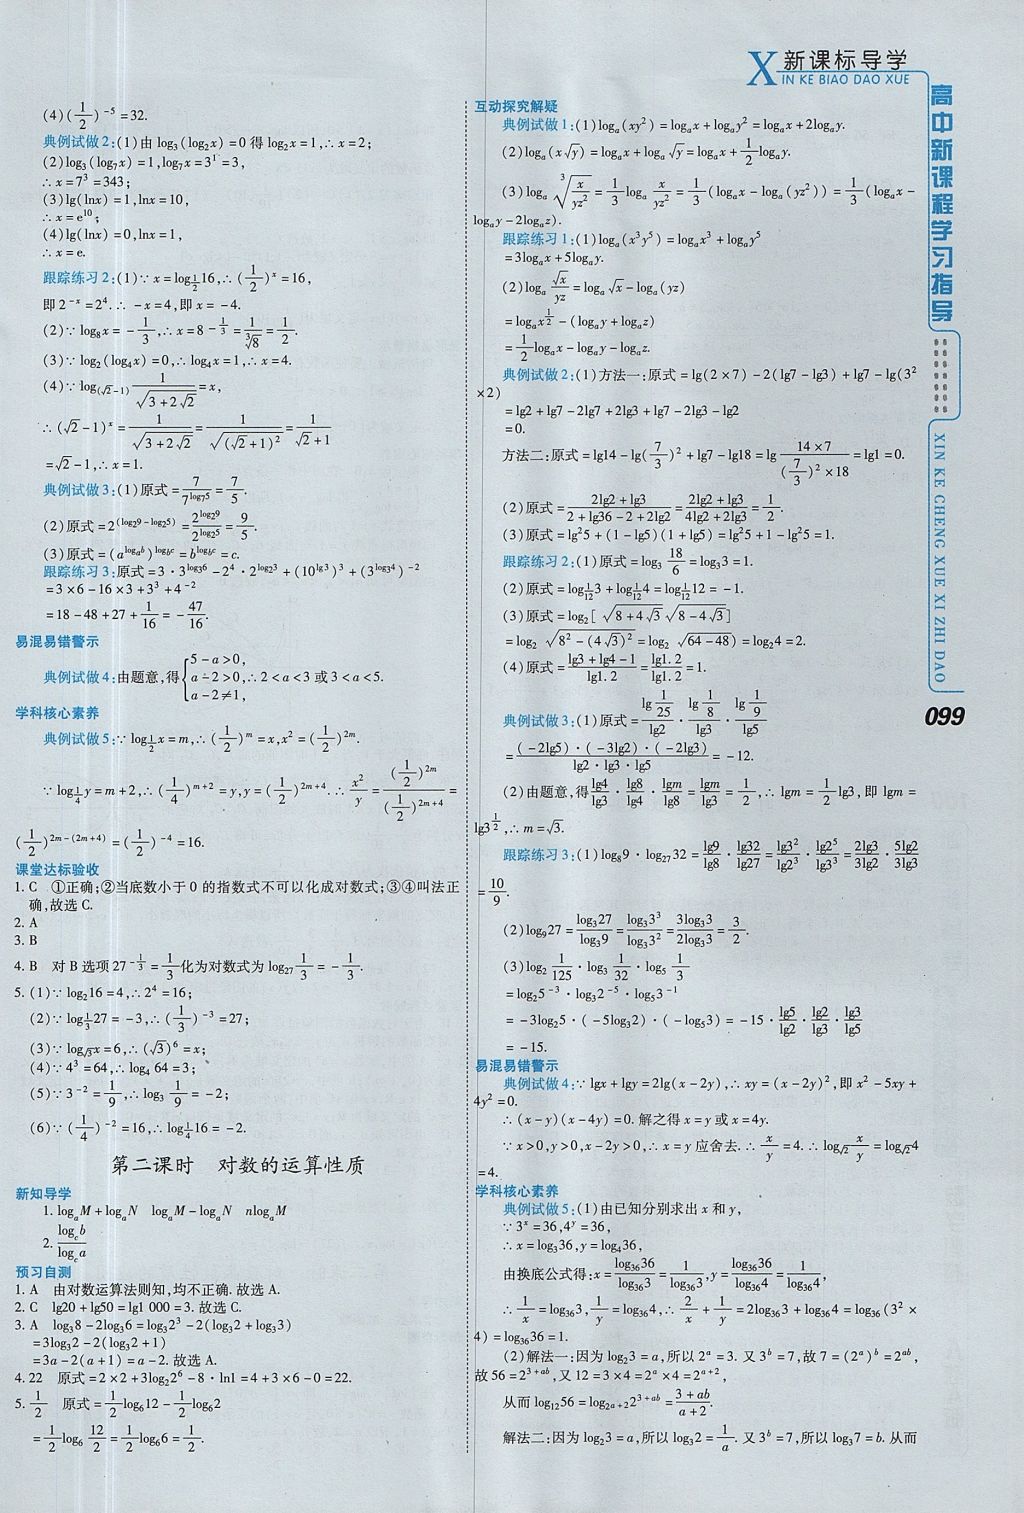 X新课标导学
XIN KE BIAO DAO XUE
高中新课程学习指导
XIN KE CHENG XUE XI ZHI DAO
099
(4)(1/2)^{-5}=32.
典例试做2:(1)由log₃(log₂x)=0得log₂x=1,∴x=2;
(2)log₃(log₇x)=1,log₇x=3¹=3,
∴x=7³=343;
(3)lg(lnx)=1,lnx=10,
∴x=e^{10};
(4)lg(lnx)=0,lnx=1,
∴x=e.
跟踪练习2:(1)∵x=log_{1/2}16,∴(1/2)^x=16,
即2^{-x}=2⁴.∴-x=4,即x=-4.
(2)∵log₈x=-1/3,∴x=8^{-1/3}=1/∛8=1/2.
(3)∵log₂(log₄x)=0,∴log₄x=1,∴x=4.
(4)∵log_{(√2-1)} 1/√(3+2√2)=x,
∴(√2-1)^x=1/√(3+2√2)=1/√((√2+1)²)=1/(√2+1)
=√2-1,∴x=1.
典例试做3:(1)原式=7/7^{log₇5}=7/5.
(2)原式=2^{(log₂9-log₂5)}=2^{log₂9}/2^{log₂5}=9/5.
(3)原式=(a^{log_a b})^{log_b c}=b^{log_b c}=c.
跟踪练习3:原式=3·3^{log₃6}-2⁴·2^{log₂3}+(10^{lg3})³+(3^{log₃4})^{-2}
=3×6-16×3+3³+4^{-2}
=18-48+27+1/16=-47/16.
易混易错警示
典例试做4:由题意,得{5-a>0,
a-2>0,∴2<a<3或3<a<5.
a-2≠1,
学科核心素养
典例试做5:∵log_{1/2}x=m,∴(1/2)^m=x,x²=(1/2)^{2m}.
∵log_{1/4}y=m+2,∴(1/4)^{m+2}=y,y=(1/2)^{2m+4}.∴x²/y=(1/2)^{2m}/(1/2)^{2m+4}=
(1/2)^{2m-(2m+4)}=(1/2)^{-4}=16.
课堂达标验收
1. C ①正确;②当底数小于0的指数式不可以化成对数式;③④叫法正
确,故选C.
2. A
3. B
4. B 对B选项27^{-1/3}=1/3化为对数式为log₂₇1/3=-1/3.
5. (1)∵log₂16=4,∴2⁴=16;
(2)∵log_{1/3}27=-3,∴(1/3)^{-3}=27;
(3)∵log_{√3}x=6,∴(√3)⁶=x;
(4)∵4³=64,∴log₄64=3;
(5)∵3^{-2}=1/9,∴log₃1/9=-2;
(6)∵(1/4)^{-2}=16,∴log_{1/4}16=-2.
第二课时 对数的运算性质
新知导学
1. log_aM+log_aN log_aM-log_aN nlog_aM
2. log_c b/log_c a
预习自测
1. A 由对数运算法则知,均不正确.故选A.
2. C lg20+lg50=lg1 000=3.故选C.
3. A log₃8-2log₃6=log₃2³-2(log₃2+log₃3)
=3log₃2-2(log₃2+1)
=3a-2(a+1)=a-2.故选A.
4. 22 原式=2×2+3log₂2⁶-8·ln1=4+3×6-0=22.
5. 1/2 原式=1/2log₆12-1/2log₆2
=1/2log₆12/2=1/2log₆6=1/2.
互动探究解疑
典例试做1:(1)log_a(xy²)=log_ax+log_ay²=log_ax+2log_ay.
(2)log_a(x√y)=log_ax+log_a√y=log_ax+1/2log_ay.
(3)log_a∛(x/yz²)=1/3log_a x/yz²=1/3(log_ax-log_a(yz²))=1/3(log_ax-
log_ay-2log_az).
跟踪练习1:(1)log_a(x³y⁵)=log_ax³+log_ay⁵
=3log_ax+5log_ay.
(2)log_a√x/yz=log_a√x-log_a(yz)
=log_ax^{1/2}-(log_ay+log_az)
=1/2log_ax-log_ay-log_az.
典例试做2:(1)方法一:原式=lg(2×7)-2(lg7-lg3)+lg7-lg(3²
×2)
=lg2+lg7-2lg7+2lg3+lg7-2lg3-lg2
=0.
方法二:原式=lg14-lg(7/3)²+lg7-lg18=lg (14×7)/((7/3)²×18)=lg1=0.
(2)原式=(2lg2+lg3)/(2+lg36-2+2lg2)=(2lg2+lg3)/(4lg2+2lg3)=1/2.
(3)原式=lg²5+(1-lg5)(1+lg5)=lg²5+1-lg²5=1.
跟踪练习2:(1)原式=log₃18/6=log₃3=1.
(2)原式=log_{1/12}3+log_{1/12}4=log_{1/12}12=-1.
(3)原式=log₂[√(8+4√3)√(8-4√3)]
=log₂√(8²-(4√3)²)=log₂√(64-48)=log₂4=2.
(4)原式=(lg3+lg4-1)/lg1.2=lg1.2/lg1.2=1.
典例试做3:(1)原式=(lg1/25)/lg2·(lg1/8)/lg3·(lg1/9)/lg5
=(-2lg5)·(-3lg2)·(-2lg3)/(lg2·lg3·lg5)=-12.
(2)由题意,得lg4/lg3·lg8/lg4·lgm/lg8=lgm/lg3=1/2,∴lgm=1/2lg3,即lgm=
lg3^{1/2},∴m=√3.
跟踪练习3:(1)log₈9·log₂₇32=lg9/lg8·lg32/lg27=lg3²/lg2³·lg2⁵/lg3³=2lg3/3lg2·5lg2/3lg3
=10/9.
(2)log₉27=log₃27/log₃9=log₃3³/log₃3²=3log₃3/2log₃3=3/2.
(3)log₂1/125·log₃1/32·log₅1/3
=log₂5^{-3}·log₃2^{-5}·log₅3^{-1}
=-3log₂5·(-5log₃2)·(-log₅3)=-15·lg5/lg2·lg2/lg3·lg3/lg5
=-15.
易混易错警示
典例试做4:∵lgx+lgy=2lg(x-2y),∴xy=(x-2y)²,即x²-5xy+
4y²=0.
∴(x-y)(x-4y)=0.解之得x=y或x=4y.
∵x>0,y>0,x-2y>0,∴x=y应舍去.∴x/y=4.∴log_{√2}x/y=log_{√2}4
=4.
学科核心素养
典例试做5:(1)由已知分别求出x和y,
∵3^x=36,4^y=36,
∴x=log₃36,y=log₄36,
由换底公式得:x=log₃₆36/log₃₆3=1/log₃₆3,y=log₃₆36/log₃₆4=1/log₃₆4,
∴1/x=log₃₆3,1/y=log₃₆4,∴2/x+1/y=2log₃₆3+log₃₆4=log₃₆(3²×
4)=log₃₆36=1.
(2)解法一:因为log₂3=a,所以2^a=3.又3^b=7,故7=(2^a)^b=2^{ab},
故56=2^{3+ab},又12=3×4=2^a×4=2^{a+2},
从而log₁₂56=log_{2^{a+2}}2^{3+ab}=(3+ab)/(a+2).
解法二:因为log₂3=a,所以log₃2=1/a.又3^b=7,所以log₃7=b.从而